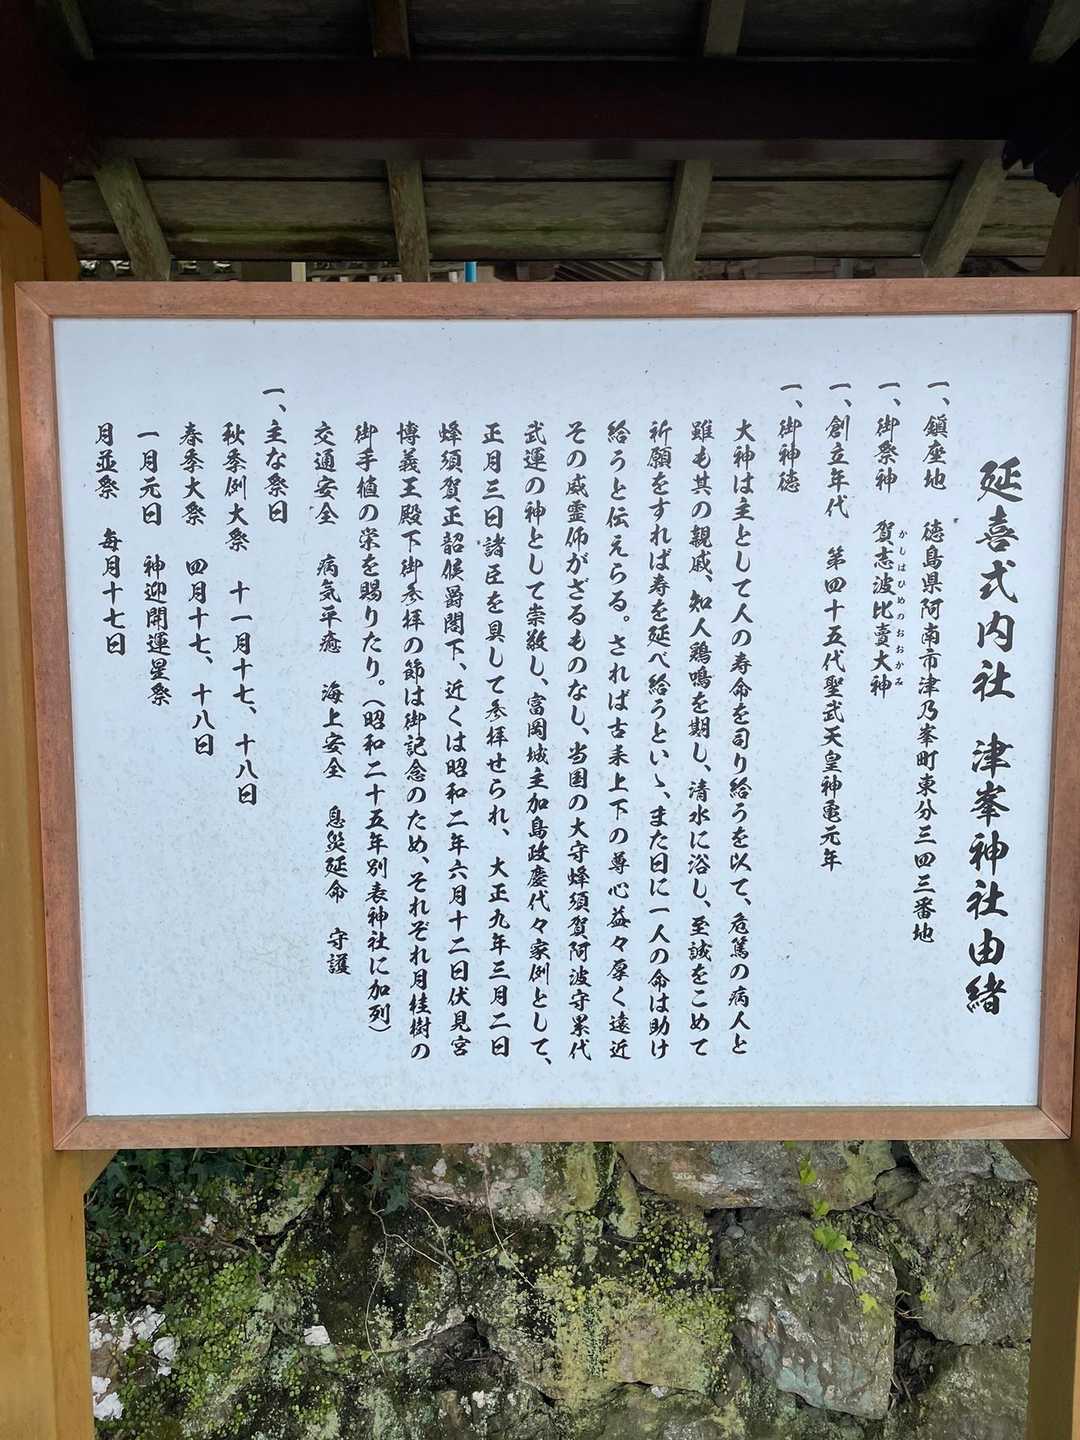 延喜式内社 津峯神社由緒
一、鎮座地 徳島県阿南市津乃峯町東分三四三番地
一、御祭神 賀志波比賣大神
かしはひめのおおかみ
一、創立年代 第四十五代聖武天皇神亀元年
一、御神徳
大神は主として人の寿命を司り給うを以て、危篤の病人と
雖も其の親戚、知人鶏鳴を期し、清水に浴し、至誠をこめて
祈願をすれば寿を延べ給うといゝ、また日に一人の命は助け
給うと伝えらる。されば古来上下の尊心益々厚く遠近
その威霊佈がざるものなし、当国の大守蜂須賀阿波守累代
武運の神として崇敬し、富岡城主加島政慶代々家例として、
正月三日諸臣を具して参拝せられ、大正九年三月二日
蜂須賀正韶侯爵閣下、近くは昭和二年六月十二日伏見宮
博義王殿下御参拝の節は御記念のため、それぞれ月桂樹の
御手植の栄を賜りたり。(昭和二十五年別表神社に加列)
交通安全 病気平癒 海上安全 息災延命 守護
一、主な祭日
秋季例大祭 十一月十七、十八日
春季大祭 四月十七、十八日
一月元日 神迎開運星祭
月並祭 毎月十七日